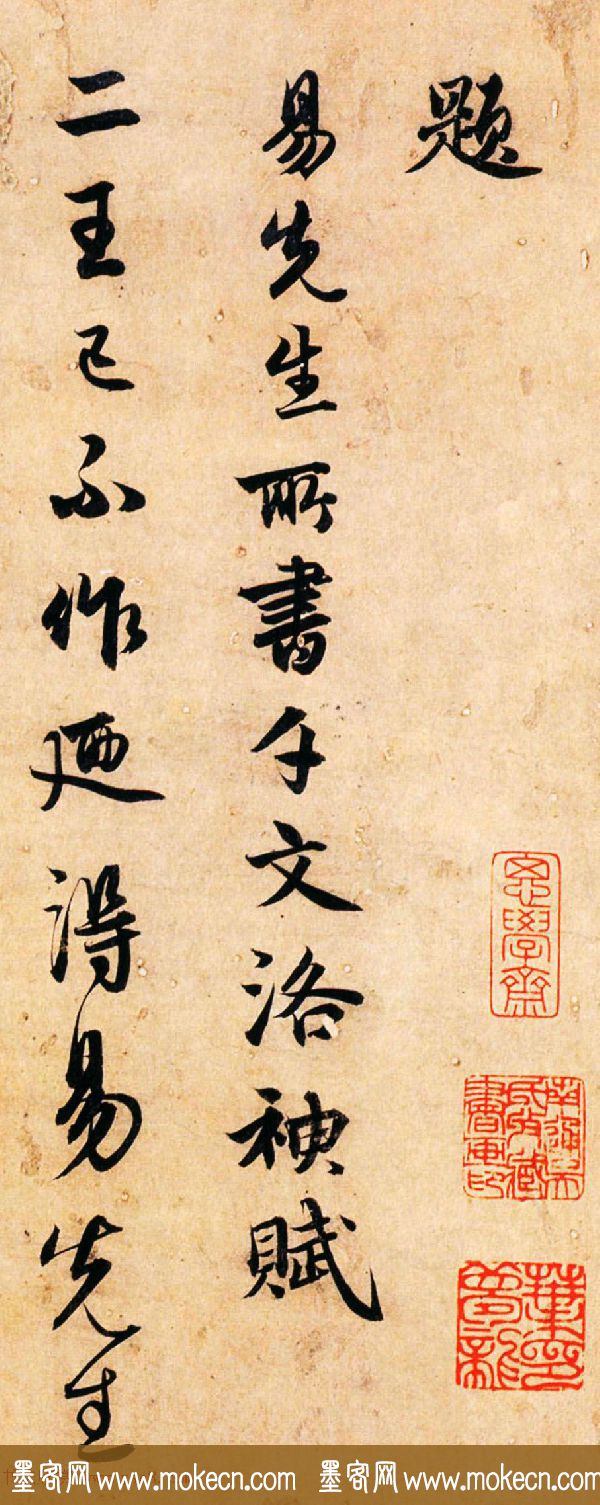 題
易先生所書千文洛神賦
二王已不作迺得易先生
思學齋
墨客网 www.mokecn.com 墨客网 www.mokecn.com